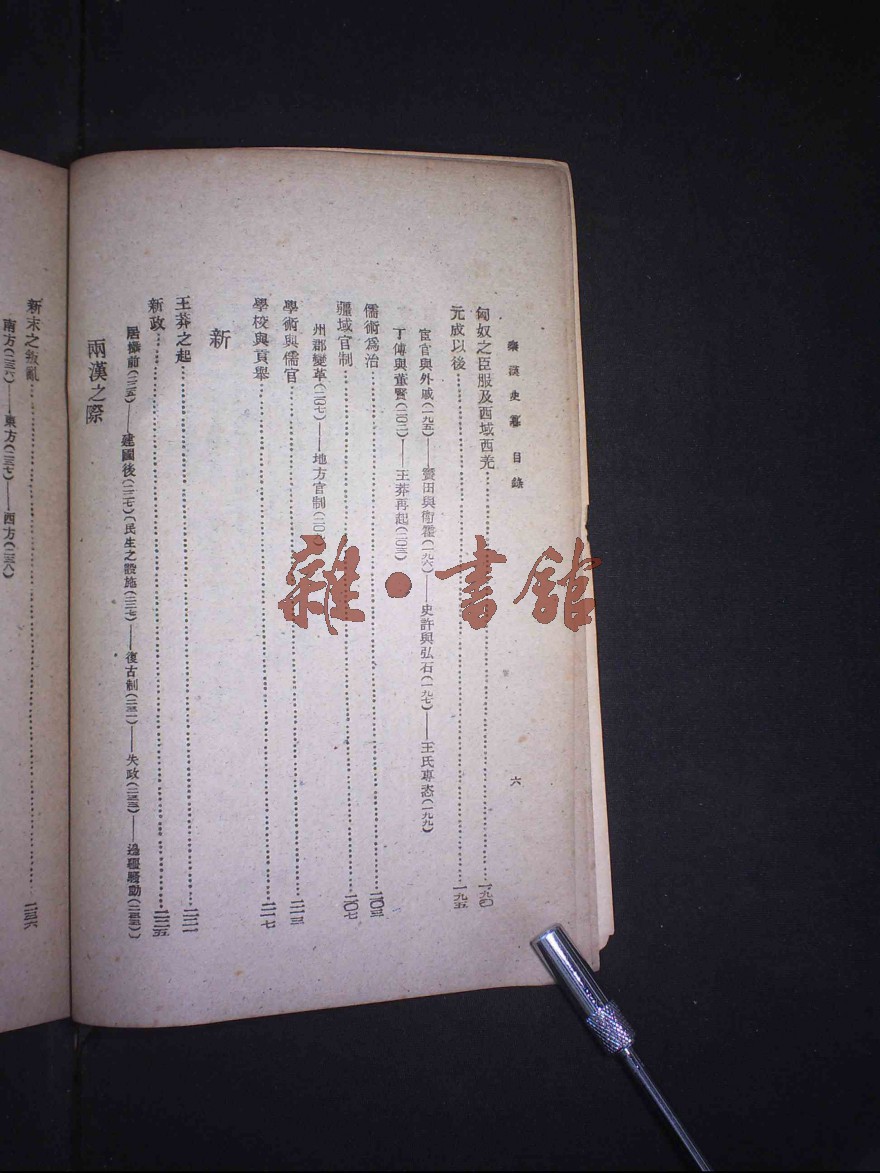 秦漢史纂 目錄 六
匈奴之臣服及西域西羌……一九〇
元成以後……一九五
宦官與外戚(一九五)——竇田與衛霍(一九六)——史許與弘石(一九七)——王氏專恣(一九九)
丁傅與董賢(二〇二)——王莽再起(二〇三)
儒術爲治……二〇三
疆域官制……二〇七
州郡變革(二〇七)——地方官制
學術與儒官……二一三
學校與貢舉……二一七
新
王莽之起……二二一
新政……二二五
居攝前(二二五)——建國後(二二七)(民生之設施(二二七)——復古制(二三一)——失政(二三三)——邊疆騷動(二三五))
兩漢之際
新末之叛亂……二三六
南方(二三六)——東方(二三七)——西方(二三八)
雜·書館